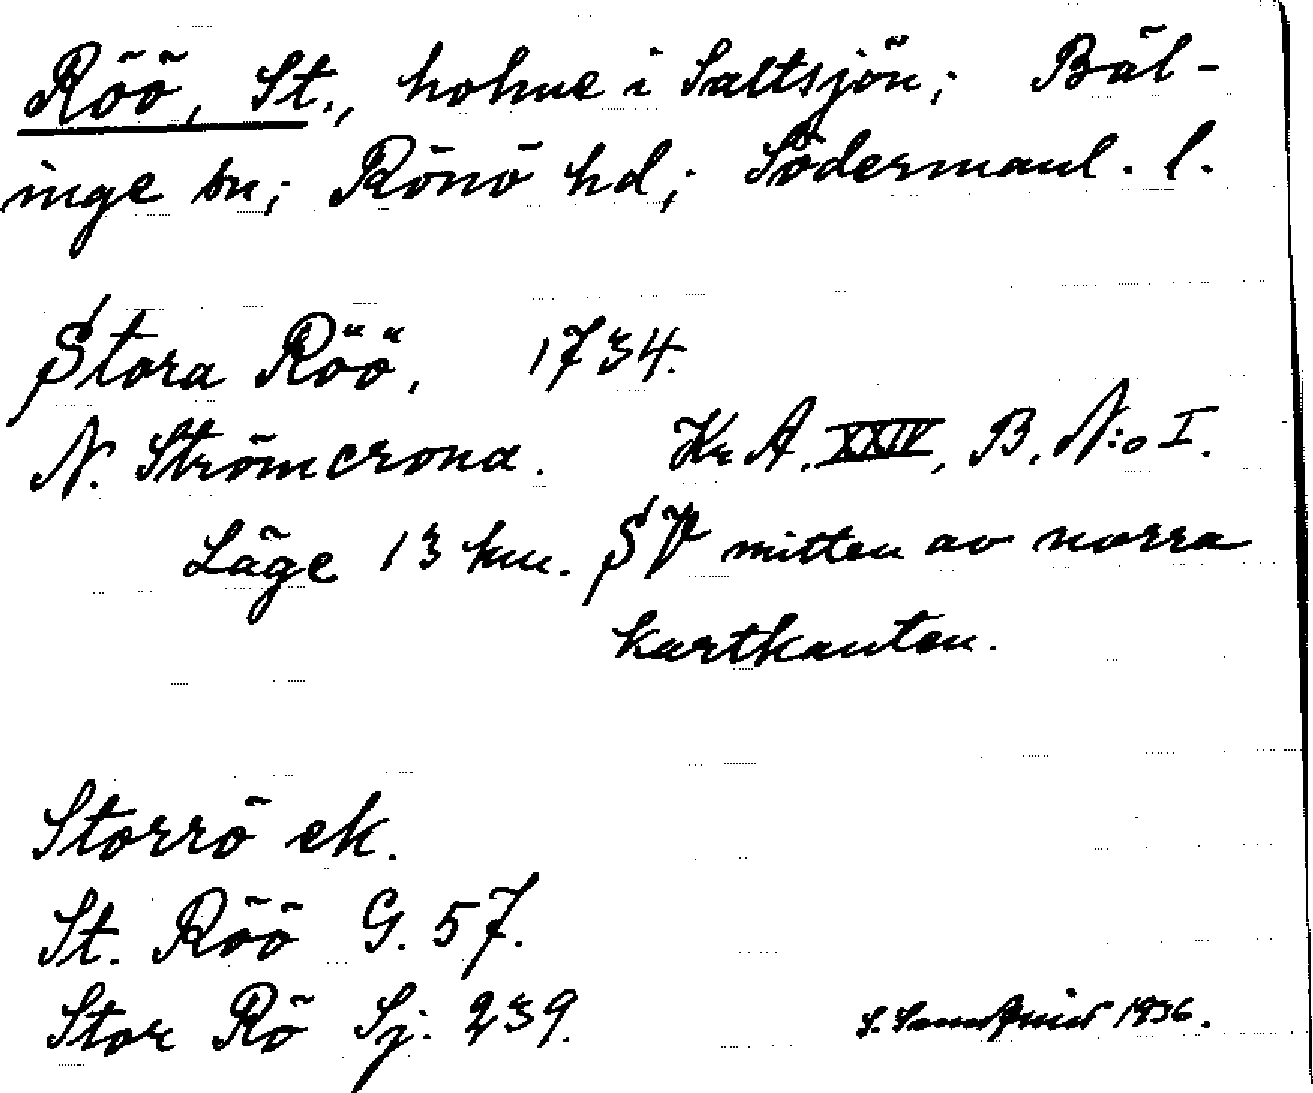 Röö, St., holme i Saltsjön; Bäl-
inge sn; Rönö hd; Södermanl. l.
Stora Röö, 1734.
N. Strömcrona. Kr. A. XXIV, B. N:o I.
Läge 13 km. SV mitten av norra
kartkanten.
Storrö ek.
St. Röö G. 57.
Stor Rö Sj. 239.
S. 1936.